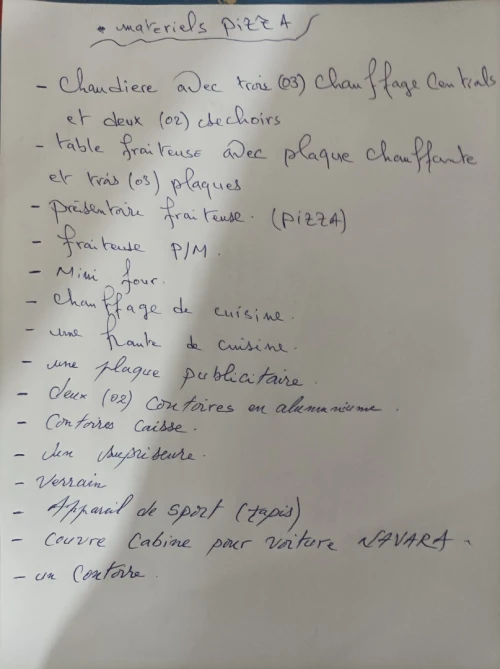 • materiels PIZZA
- Chaudiere avec trois (03) chauffage Centrals
et deux (02) sechoirs
- table fraiteuse avec plaque chauffante
et trois (03) plaques
- présentoire fraiteuse. (PIZZA)
- fraiteuse P/M.
- Mini four.
- chauffage de cuisine.
- une haute de cuisine.
- une plaque publicitaire.
- deux (02) contoires en alumuniume.
- Contoires caisse.
- un
- Verrain
- Appareil de sport (tapis)
- Couvre Cabine pour voiture NAVARA.
- un contoire.